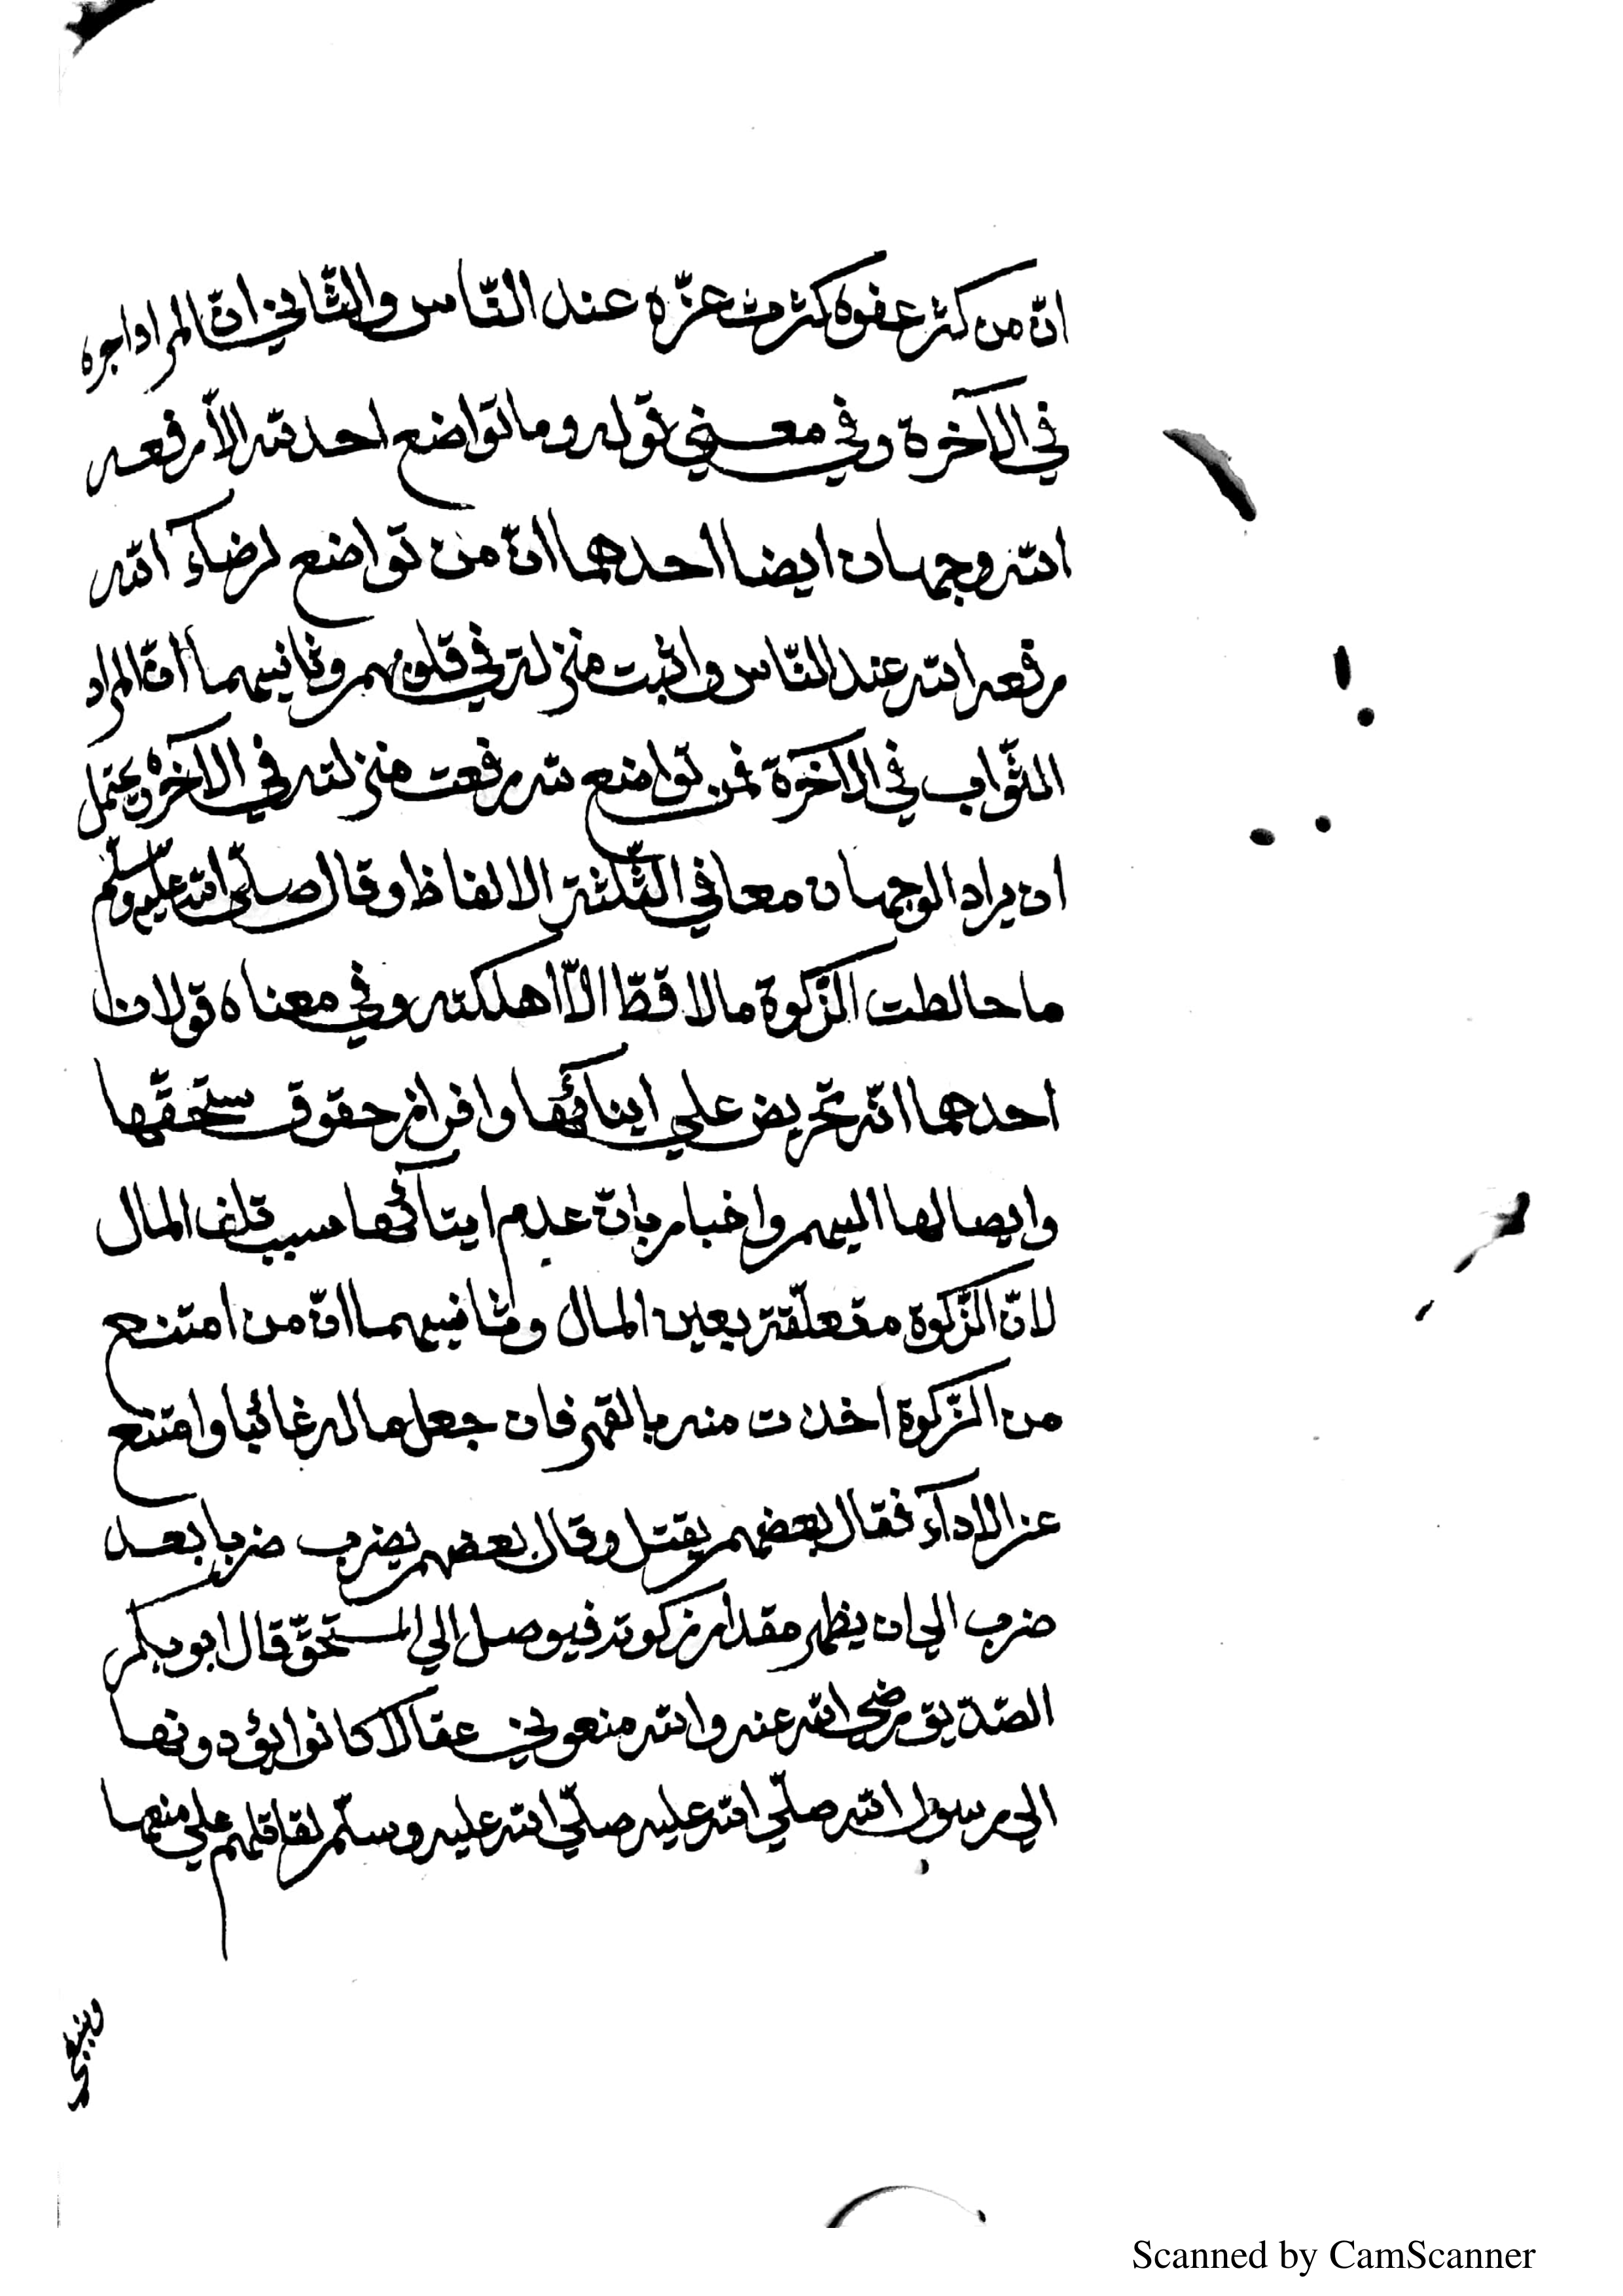 انّ من كثر عفوه كثرت عزّه عند النّاس والثّاني انّ المراد اجره
في الآخرة وفي معني قوله وما تواضع احد لله الاّ رفعه
الله وجهان ايضا احدهما انّ من تواضع لرضاء الله
رفعه الله عند النّاس واثبت منزلته في قلوبهم وثانيهما انّ المراد
الثّواب في الآخرة فمن تواضع لله رفعت منزلته في الآخرة ويحتمل
ان يراد الوجهان معا في الثّلثة الالفاظ وقال صلّي الله عليه وسلّم
ما خالطت الزّكوة مالا قطّ الاّ اهلكته وفي معناه قولان
احدهما انّه تحريض علي ايتائها وافراز حقوق مستحقّها
وايصالها اليهم واخبار بانّ عدم ايتائها سبب تلف المال
لانّ الزّكوة متعلّقة بعين المال وثانيهما انّ من امتنع
من الزّكوة اخذت منه بالقهر فان جعل ماله غائبا وامتنع
عن الاداء فقال بعضهم يقتل وقال بعضهم يضرب ضربا بعد
ضرب الي ان يظهر مقدار زكوته فيوصل الي المستحقّ قال ابو بكر
الصّدّيق رضي الله عنه والله منعوني عقالا كانوا يؤدونها
الي رسول الله صلّي الله عليه صلّي الله عليه وسلّم لقاتلهم علي منعها
Scanned by CamScanner